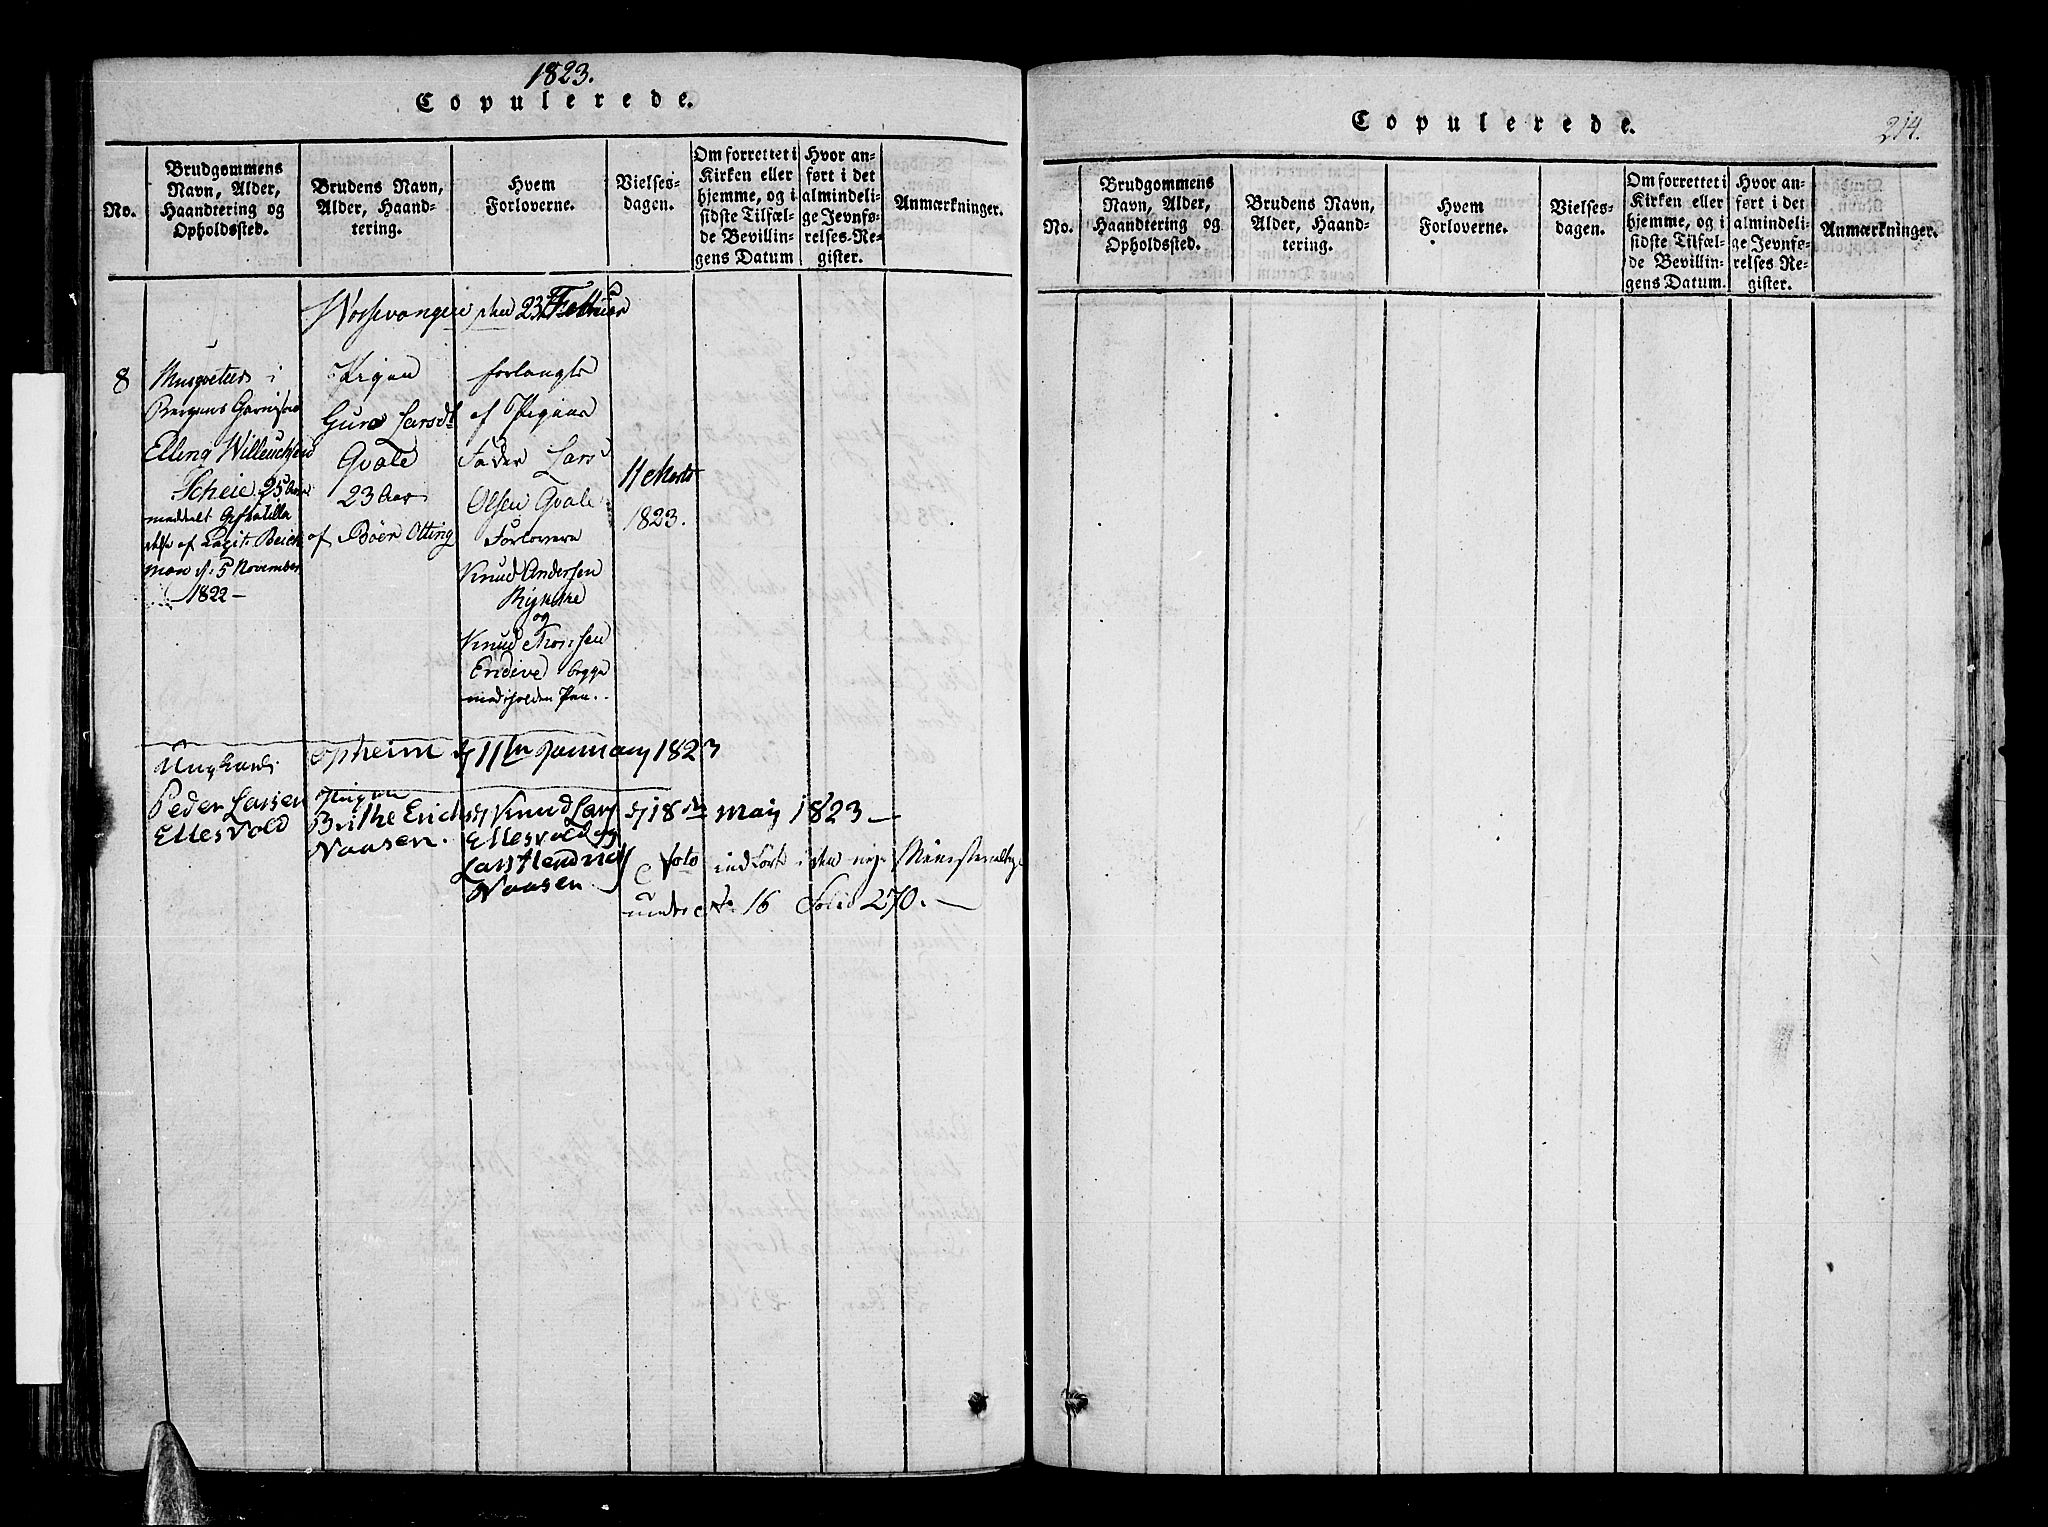 1823.
Copulerede.
No.
Brudgommens
Navn, Alder,
Haandtering og
Opholdssted.
Brudens Navn,
Alder, Haand-
tering.
Hvem
Forloverne.
Vielses-
dagen.
Om forrettet i
Kirken eller
hjemme, og i
sidste Tilfæl-
de Bevillin-
gens Datum
Hvor an-
ført i det
almindeli-
ge Jevnfø-
relses-Re-
gister.
Anmærkninger.
Wossevangen den 23 Februar
8
Musqueteer i
Bergens Garnison
Elling Willichsen
Scheie 25 Aar
meddelt
af Capit: Beich
man d: 5 November
1822 –
Pigen
Guro Larsdt
Qvale
23 Aar
af Bøer Otting
forlangt
af Pigens
Fader Lars
Olsen Qvale
Forlovere
Knud Andersen
og
Knud
begge
11 Marts
1823.
Ungkarl
Opheim d 11te January 1823
Peder Larsen
Ellesvold
Pigen
Brithe Erichsd
Naasen.
Knud Lars
Ellesvold og
Lars Hendrich
Naasen.
d 18de May 1823 –
Noto indført i den nye Ministerialbog
under No. 16 Folio 270. –
Copulerede.
214.
No.
Brudgommens
Navn, Alder,
Haandtering og
Opholdssted.
Brudens Navn,
Alder, Haand-
tering.
Hvem
Forloverne.
Vielses-
dagen.
Om forrettet i
Kirken eller
hjemme, og i
sidste Tilfæl-
de Bevillin-
gens Datum.
Hvor an-
ført i det
almindeli-
ge Jevnfø-
relses Re-
gister.
Anmærkninger.